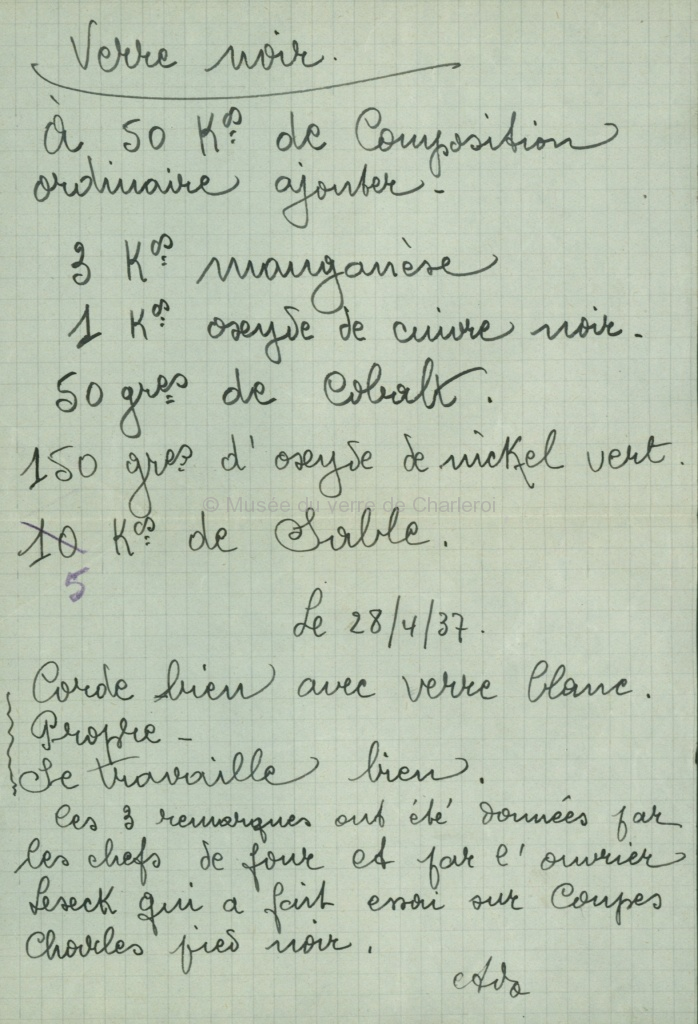 Verre noir.
À 50 Kgs de Composition
ordinaire ajouter -
3 Kgs manganèse
1 Kgs oxyde de cuivre noir.
50 gres de Cobalt.
150 gres d'oxyde de nickel vert.
© Musée du verre de Charleroi
10 Kgs de Sable.
5
Le 28/4/37.
Corde bien avec verre blanc.
Propre -
Se travaille bien.
Ces 3 remarques ont été données par
les chefs de four et par l'ouvrier
qui a fait essai sur Coupes
Charles pied noir.